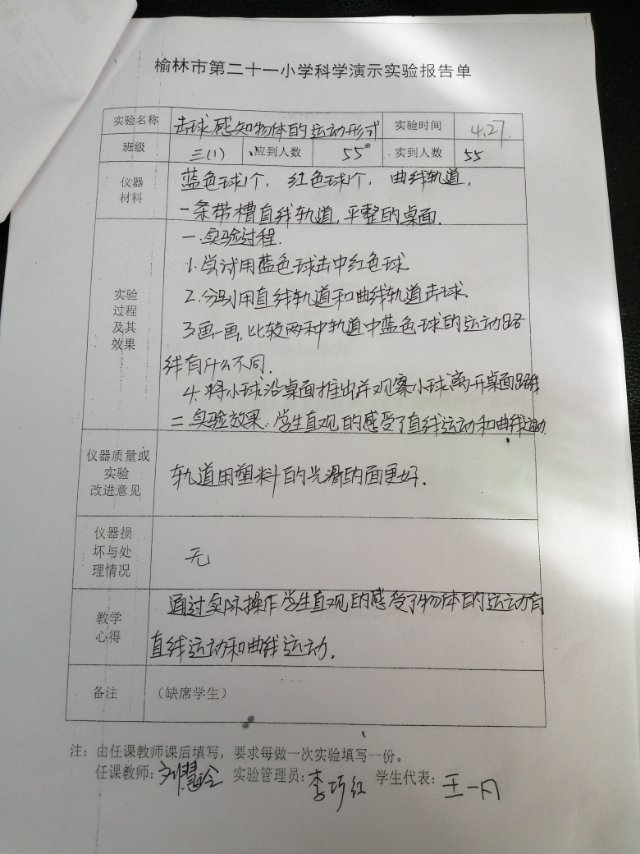 榆林市第二十一小学科学演示实验报告单
实验名称 击球感知物体的运动形式 实验时间 4.27.
班级 三(1) 应到人数 55 实到人数 55
仪器材料 蓝色球1个, 红色球1个, 曲线轨道,
一条带槽直线轨道, 平整的桌面.
实验过程及其效果 一.实验过程.
1.尝试用蓝色球击中红色球.
2.分别用直线轨道和曲线轨道击球.
3.画一画,比较两种轨道中蓝色球的运动路
线有什么不同.
4.将小球沿桌面推出并观察小球离开桌面路线
二.实验效果:学生直观的感受了直线运动和曲线运动.
仪器质量或实验改进意见 轨道用塑料的光滑的面更好.
仪器损坏与处理情况 无
教学心得 通过实际操作学生直观的感受了物体的运动有
直线运动和曲线运动.
备注 (缺席学生)
注: 由任课教师课后填写,要求每做一次实验填写一份。
任课教师: 刘慧玲 实验管理员: 李巧红 学生代表: 王一凡